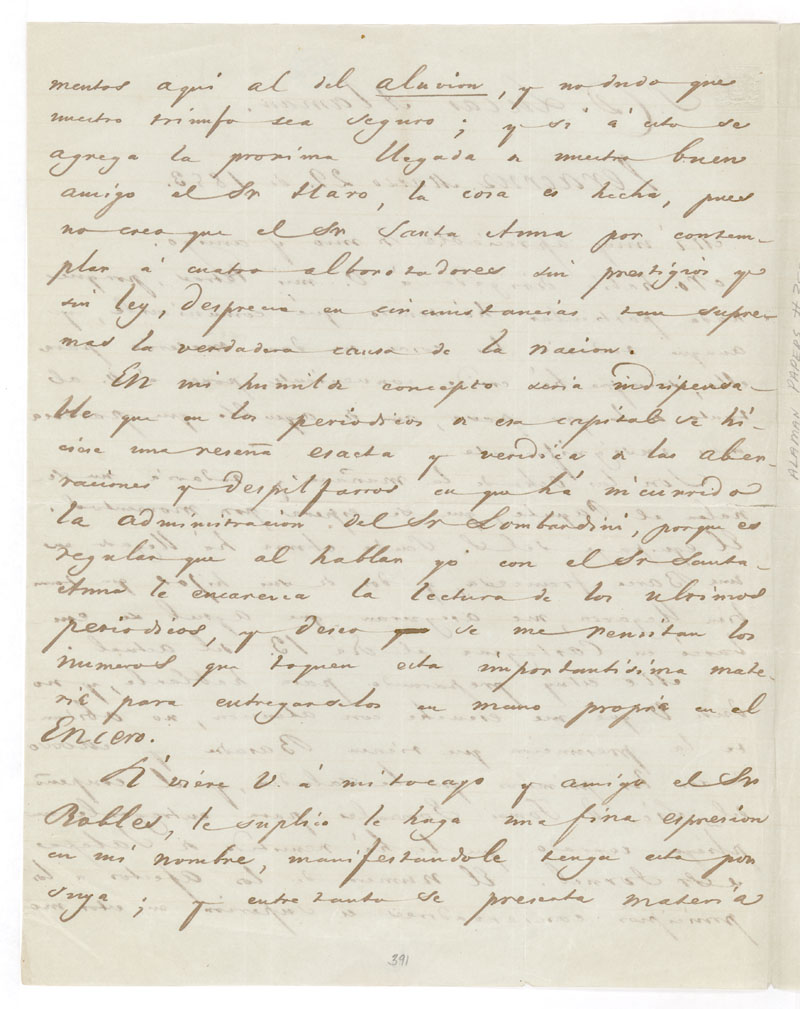 mentos aquí al del aluvion, y no dudo que
nuestro triunfo sea seguro; y si á esto se
agrega la proxima llegada de nuestro buen
amigo el Sr Haro, la cosa es hecha, pues
no creo que el Sr Santa Anna por contem-
plar á cuatro alborotadores sin prestigio y
sin ley, desprecie en circunstancias tan supre-
mas la verdadera causa de la nacion.
En mi humilde concepto seria indispensa-
ble que en los periodicos de esa capital se hi-
ciese una reseña esacta y veridica de las aber-
raciones y despilfarros en que há incurrido
la administracion del Sr Lombardini, porque es
regular que al hablar yo con el Sr Santa-
Anna le encarezca la lectura de los ultimos
periodicos, y deseo se me remitan los
numeros que toquen esta importantisima mate-
ria para entregarselos en mano propia en el
Encero.
Si viére V. á mi tocayo y amigo el Sr
Robles, le suplico le haga una fina espresion
en mi nombre, manifestandole tenga esta por
suya; y entre tanto se presenta materia
391
ALAMAN PAPERS #